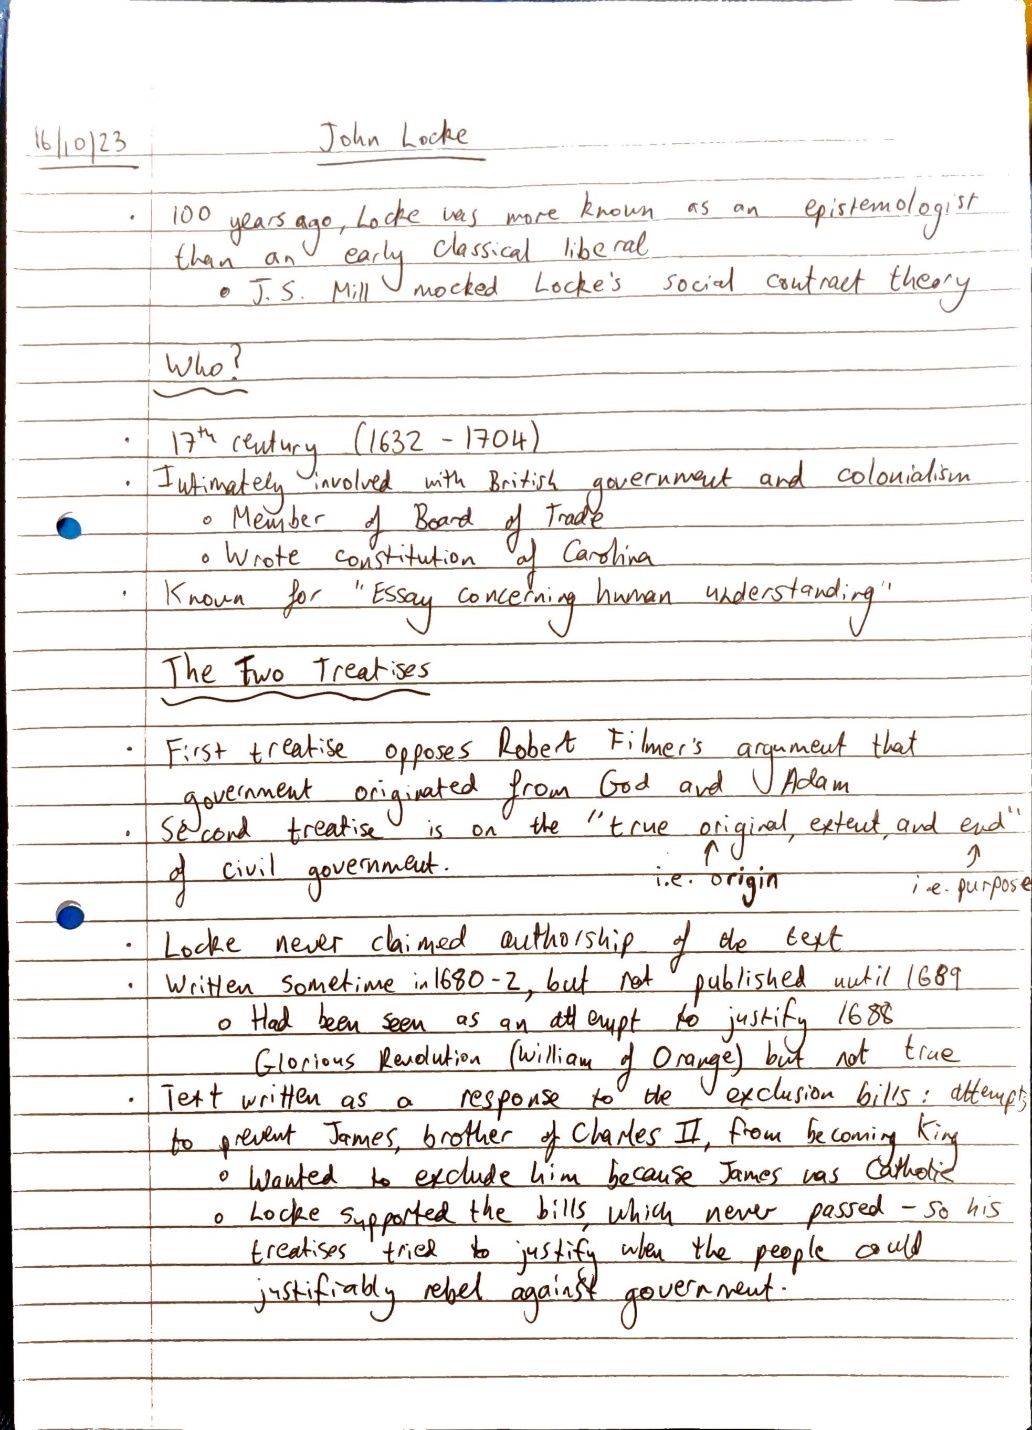 16/10/23 John Locke
· 100 years ago, Locke was more known as an epistemologist
than an early classical liberal
• J. S. Mill mocked Locke's social contract theory
Who?
· 17th century (1632 - 1704)
· Intimately involved with British government and colonialism
o Member of Board of Trade
o Wrote constitution of Carolina
· Known for "Essay concerning human understanding"
The Two Treatises
· First treatise opposes Robert Filmer's argument that
government originated from God and Adam
· Second treatise is on the "true original, extent, and end"
of civil government. ↑ i.e. origin ↑ i.e. purpose
· Locke never claimed authorship of the text
· Written sometime in 1680-2, but not published until 1689
o Had been seen as an attempt to justify 1688
Glorious Revolution (William of Orange) but not true
· Text written as a response to the exclusion bills: attempts
to prevent James, brother of Charles II, from becoming King
o Wanted to exclude him because James was Catholic
o Locke supported the bills, which never passed - so his
treatises tried to justify when the people could
justifiably rebel against government.